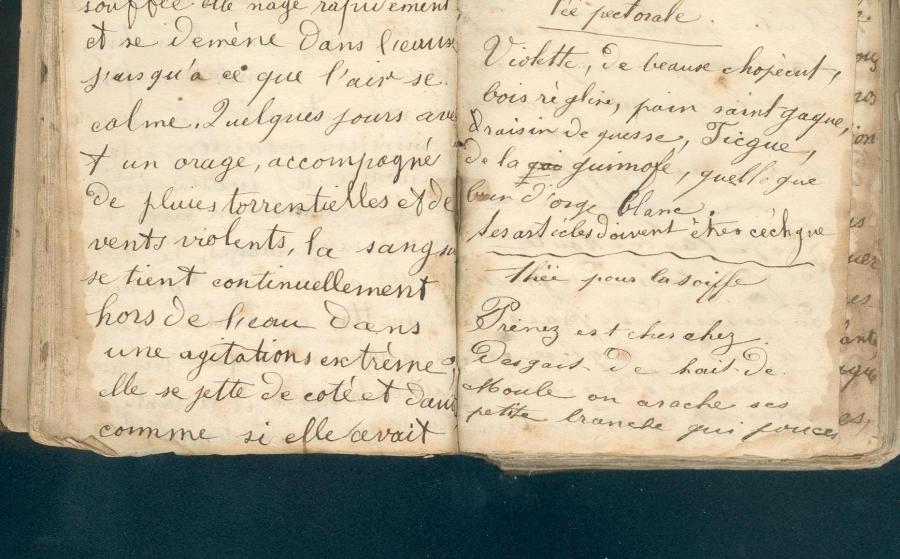 souffle elle nage rapidement
et se demène dans l'eause
jusqu'a ce que l'air se
calme. Quelques jours ava
t un orage, accompagné
de pluies torrentielles et de
vents violents, la sangsu
se tient continuellement
hors de l'eau dans
une agitations extrème
elle se jette de coté et d'aut
comme si elle avait
Tée pectorale.
Violette, de beause chopécut,
bois règlise, pain saint gague,
& raisin de guesse, Ticgue,
de la guimofe, quelle que
brun d'orge blanc
Ses articles doivent être céchque
Thée pour la soiffe
Prenez est cherchez
Des gait de hait de
Moule on arache ses
petite branche qui pouces